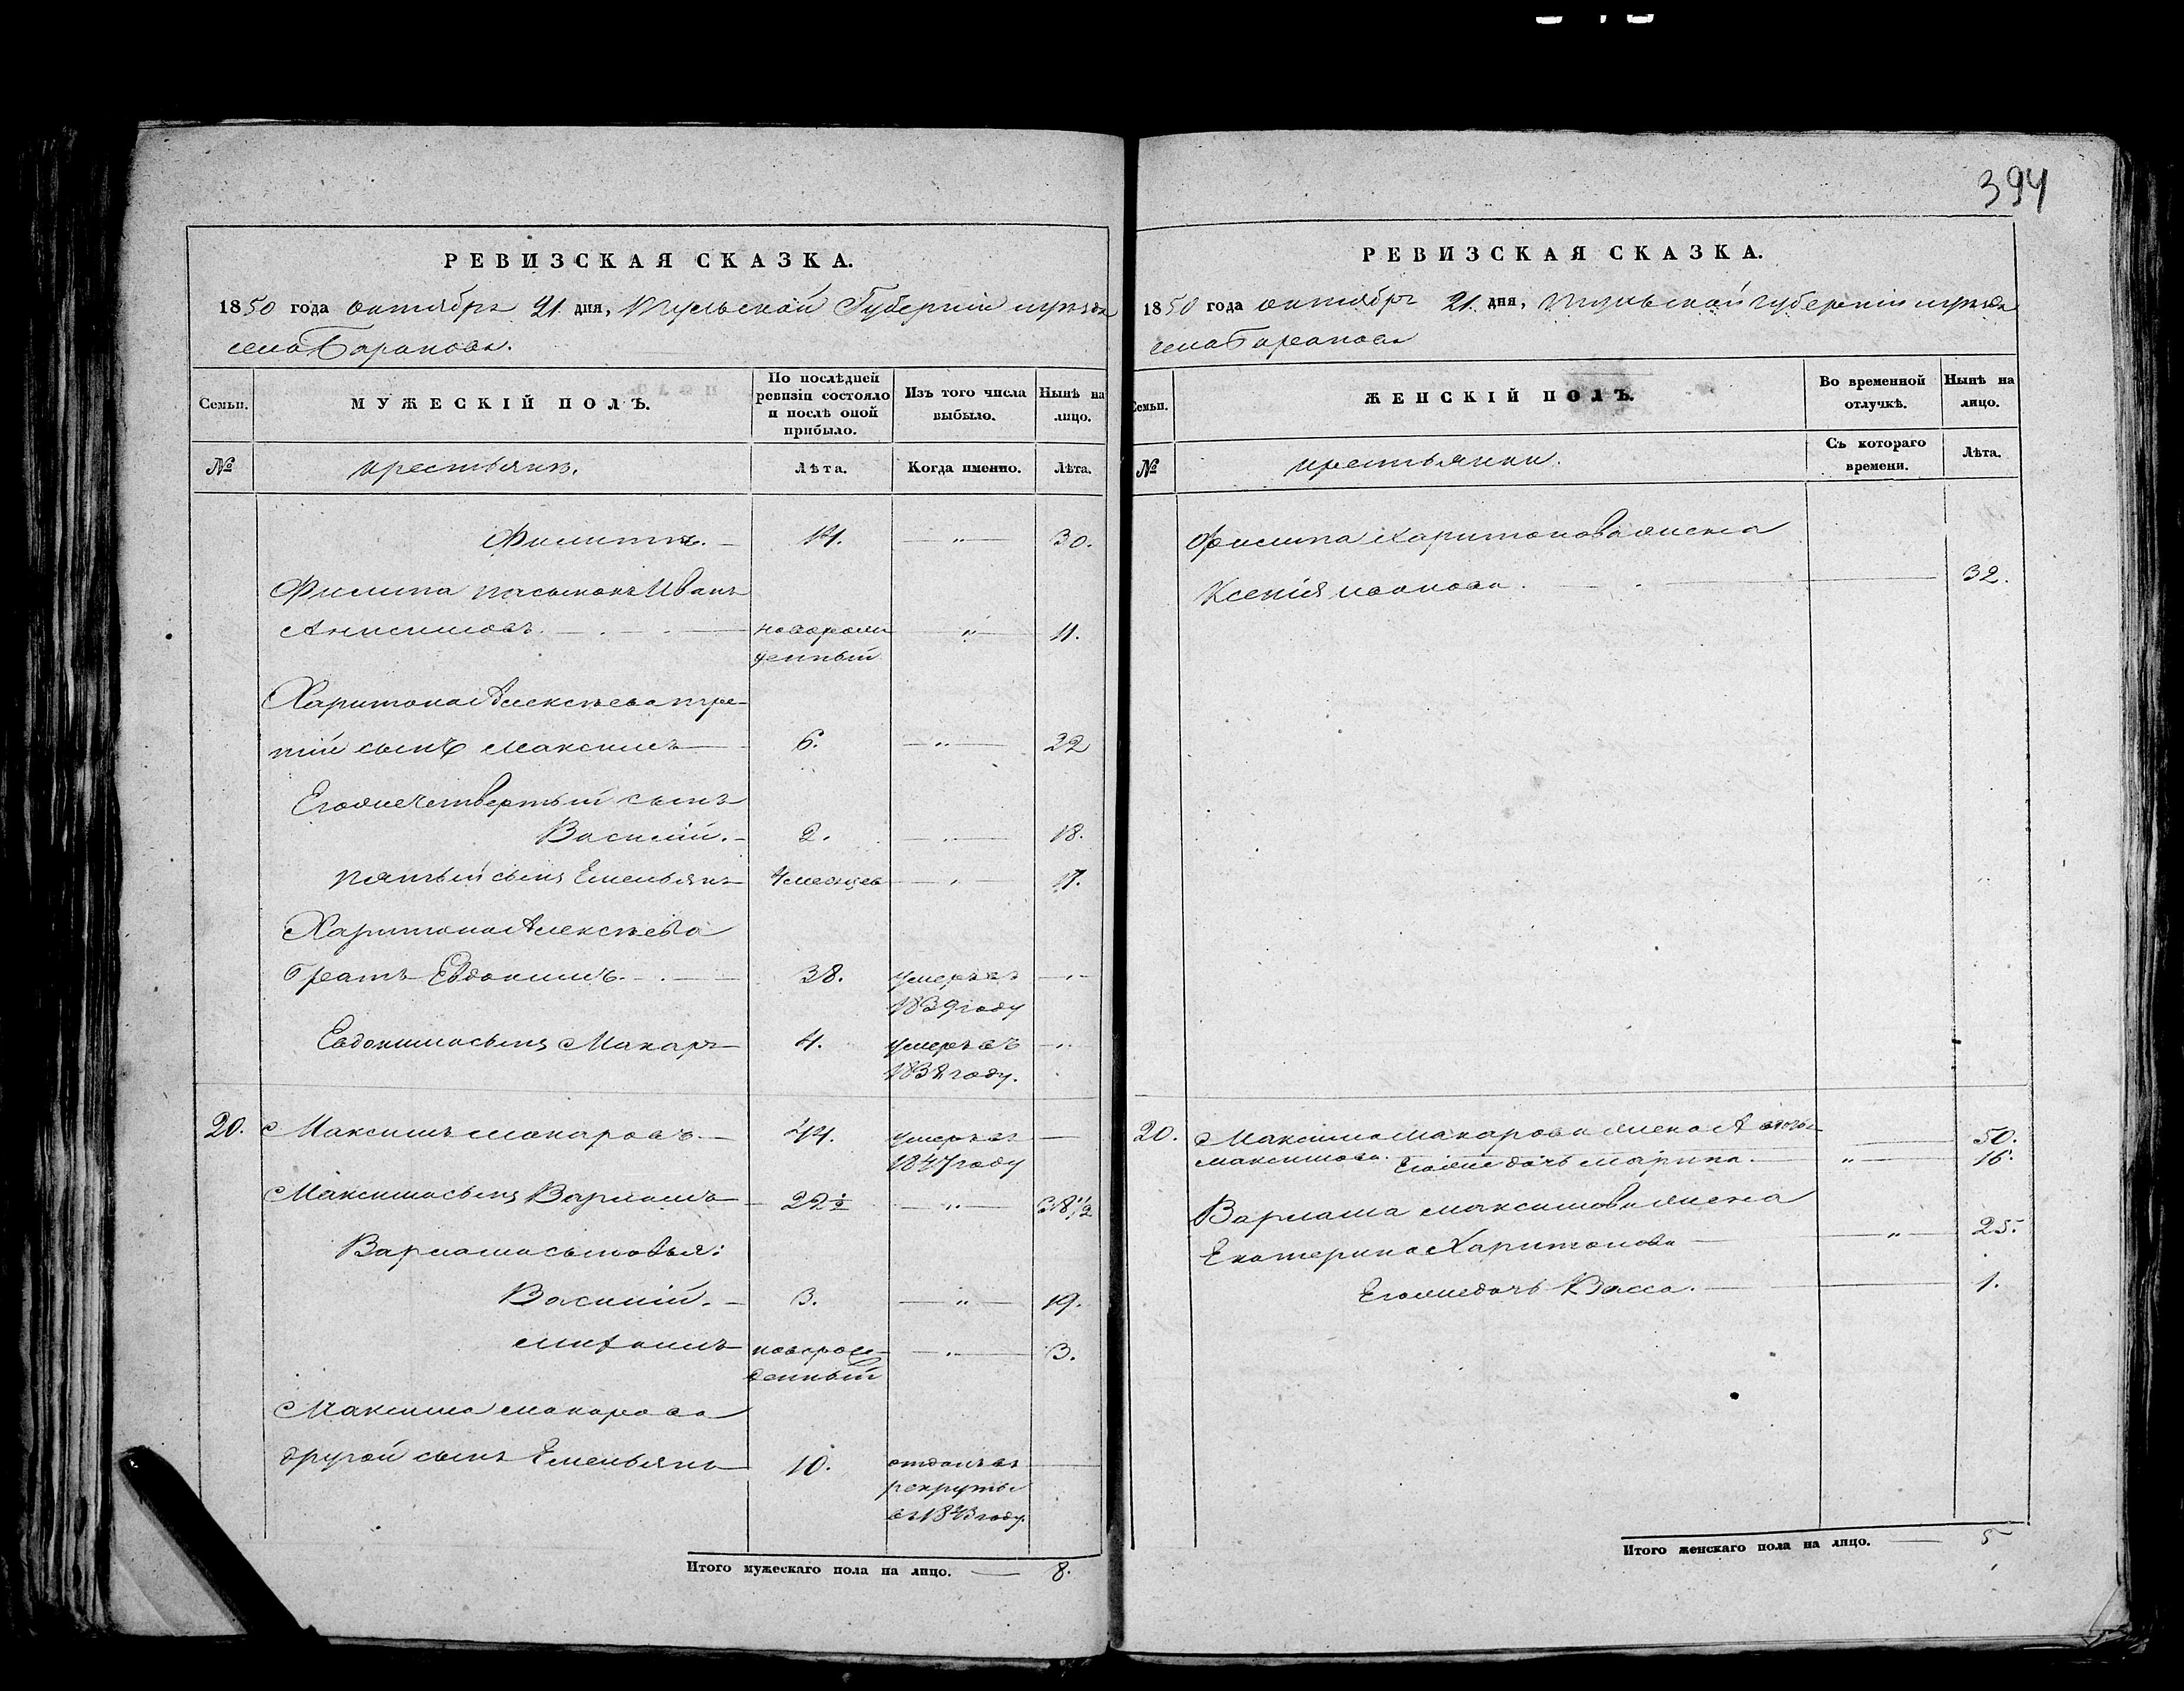 394
РЕВИЗСКАЯ СКАЗКА.
1850 года октября 21 дня, Тульской Губернiи
села Баранова.
Семьи.
МУЖЕСКIЙ ПОЛЪ.
По послѣдней ревизiи состояло и послѣ оной прибыло.
Изъ того числа выбыло.
Нынѣ на лицо.
№
крестьяне.
Лѣта.
Когда именно.
Лѣта.
Филиппъ. — 14. — „ — 30.
Филипа пасынокъ Иванъ
Анисимовъ. — новорож — „ — 11.
денный
Харитона Алексѣева тре-
тiй сынъ Максимъ — 6. — „ — 22
Егоже четвертый сынъ
Василiй. — 2. — „ — 18.
пятый сынъ Емельянъ — 4 месяцев — „ — 17.
Харитона Алексѣева
братъ Евдокимъ. — 38. умеръ въ — „ —
1839 году
Евдокима сынъ Макаръ — 4. умеръ въ — „
году.
20. Максимъ Макаровъ. — 44. умеръ въ —
1847 году
Максима сынъ Варламъ — 22 1/2 — „ — 38 1/2
Варлама сыновья:
Василiй. — 3. — „ — 19.
новорож- — „ — 3.
денный
Максима Макарова
другой сынъ Емельянъ — 10. отданъ въ —
рекруты
году.
Итого мужескаго пола на лицо. — 8.
РЕВИЗСКАЯ СКАЗКА.
1850 года октября 21 дня, Тульской губернiи
села Баранова
Семьи.
ЖЕНСКIЙ ПОЛЪ.
Во временной отлучкѣ.
Нынѣ на лицо.
№
крестьянки.
Съ котораго времени.
Лѣта.
Филипа Харитонова жена
Ксенiя Иванова. — 32.
20. Максима Макарова жена — 50.
Максимова. Егоже дочь Марина. — „ — 16.
Варлама Максимова жена
Екатерина Харитонова — „ — 25.
Егоже дочь Васса. — 1.
Итого женскаго пола на лицо. — 5